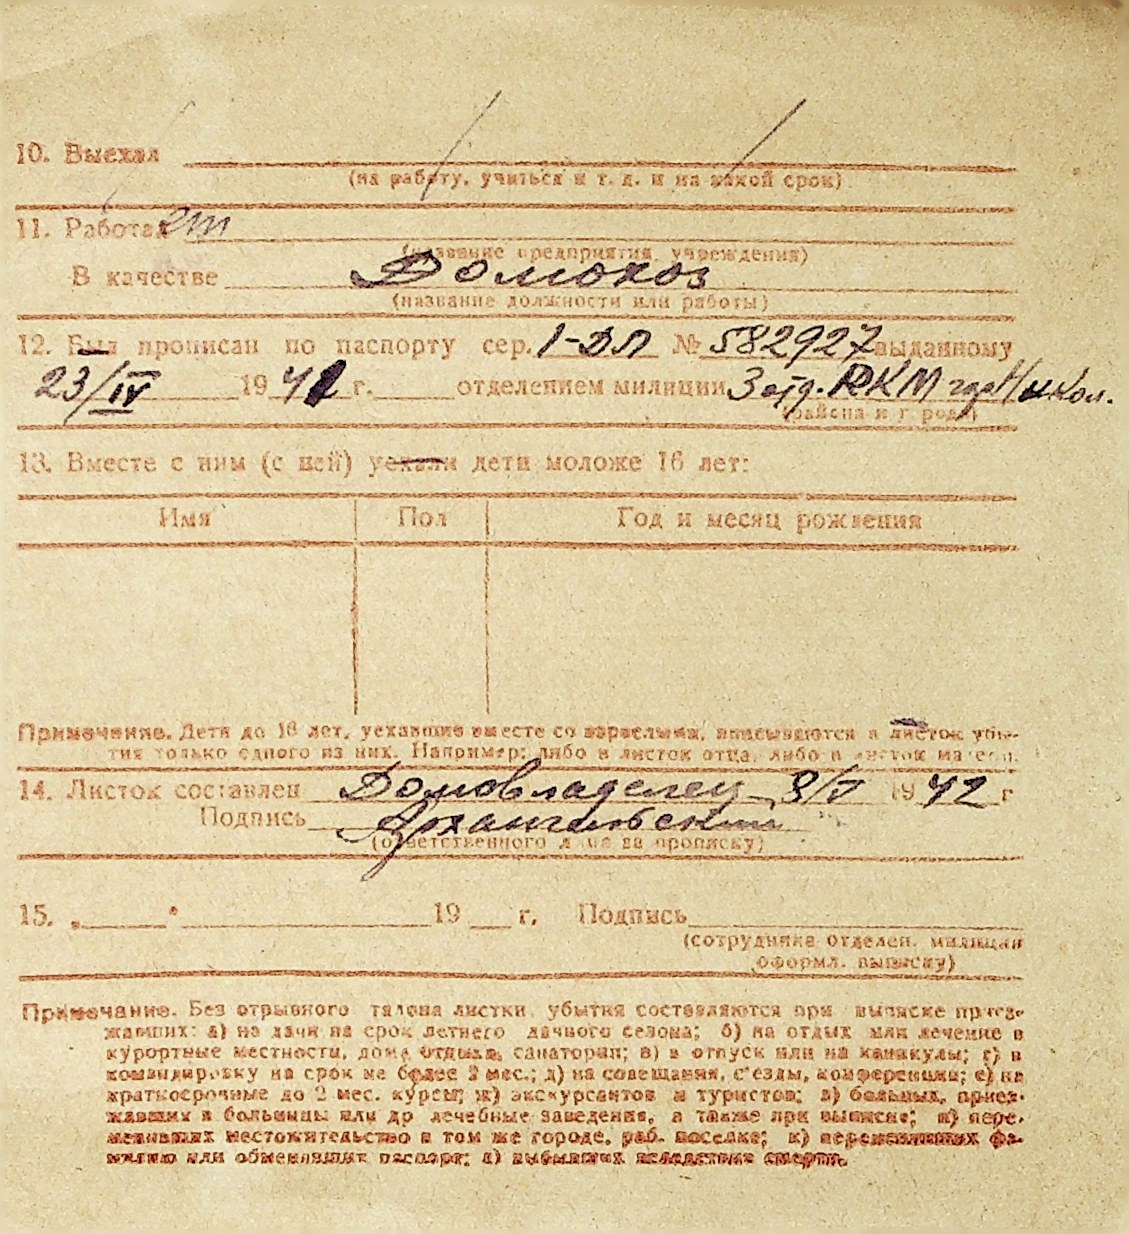 10. Выехал
(на работу, учиться и т. д. и на какой срок)
11. Работает
(название предприятия, учреждения)
В качестве Домохоз
(название должности или работы)
12. Был прописан по паспорту сер. 1-ДЛ № 582927 выданному
23/IV 1941 г. отделением милиции 3 отд. РКМ гор Никол.
(района и города)
13. Вместе с ним (с ней) уехали дети моложе 16 лет:
Имя Пол Год и месяц рождения
Примечание. Дети до 16 лет, уехавшие вместе со взрослыми, вписываются в листок убы-
тия только одного из них. Например: либо в листок отца, либо в листок матери.
14. Листок составлен Домовладелец 8/V 1942 г
Подпись Архангельский
(ответственного лица за прописку)
15. „ " 19 г. Подпись
(сотрудника отделен. милиции
оформл. выписку)
Примечание. Без отрывного талона листки убытия составляются при выписке приез-
жавших: а) на дачи на срок летнего дачного сезона; б) на отдых или лечение в
курортные местности, дома отдыха, санатории; в) в отпуск или на каникулы; г) в
командировку на срок не более 2 мес.; д) на совещания, с'езды, конференции; е) на
краткосрочные до 2 мес. курсы; ж) экскурсантов и туристов; з) больных, приез-
жавших в больницы или др лечебные заведения, а также при выписке; и) пере-
менивших местожительство в том же городе, раб. поселке; к) переменивших фа-
милию или обменявших паспорт; л) выбывших вследствие смерти.